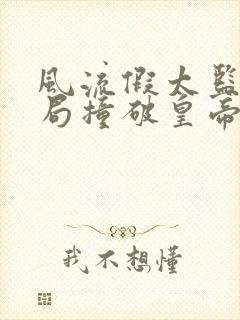 風流假太監
局撞破皇帝
我不想懂